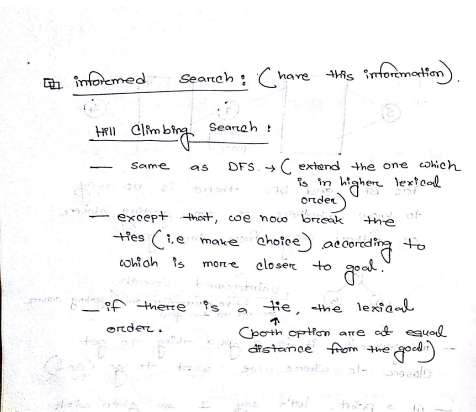 informed search: (have this information).
Hill Climbing Search:
— same as DFS → (extend the one which
is in higher lexical
order)
— except that, we now break the
ties (i.e make choice) according to
which is more closer to goal.
— if there is a tie, the lexical
order. ↑
(both option are at equal
distance from the goal)